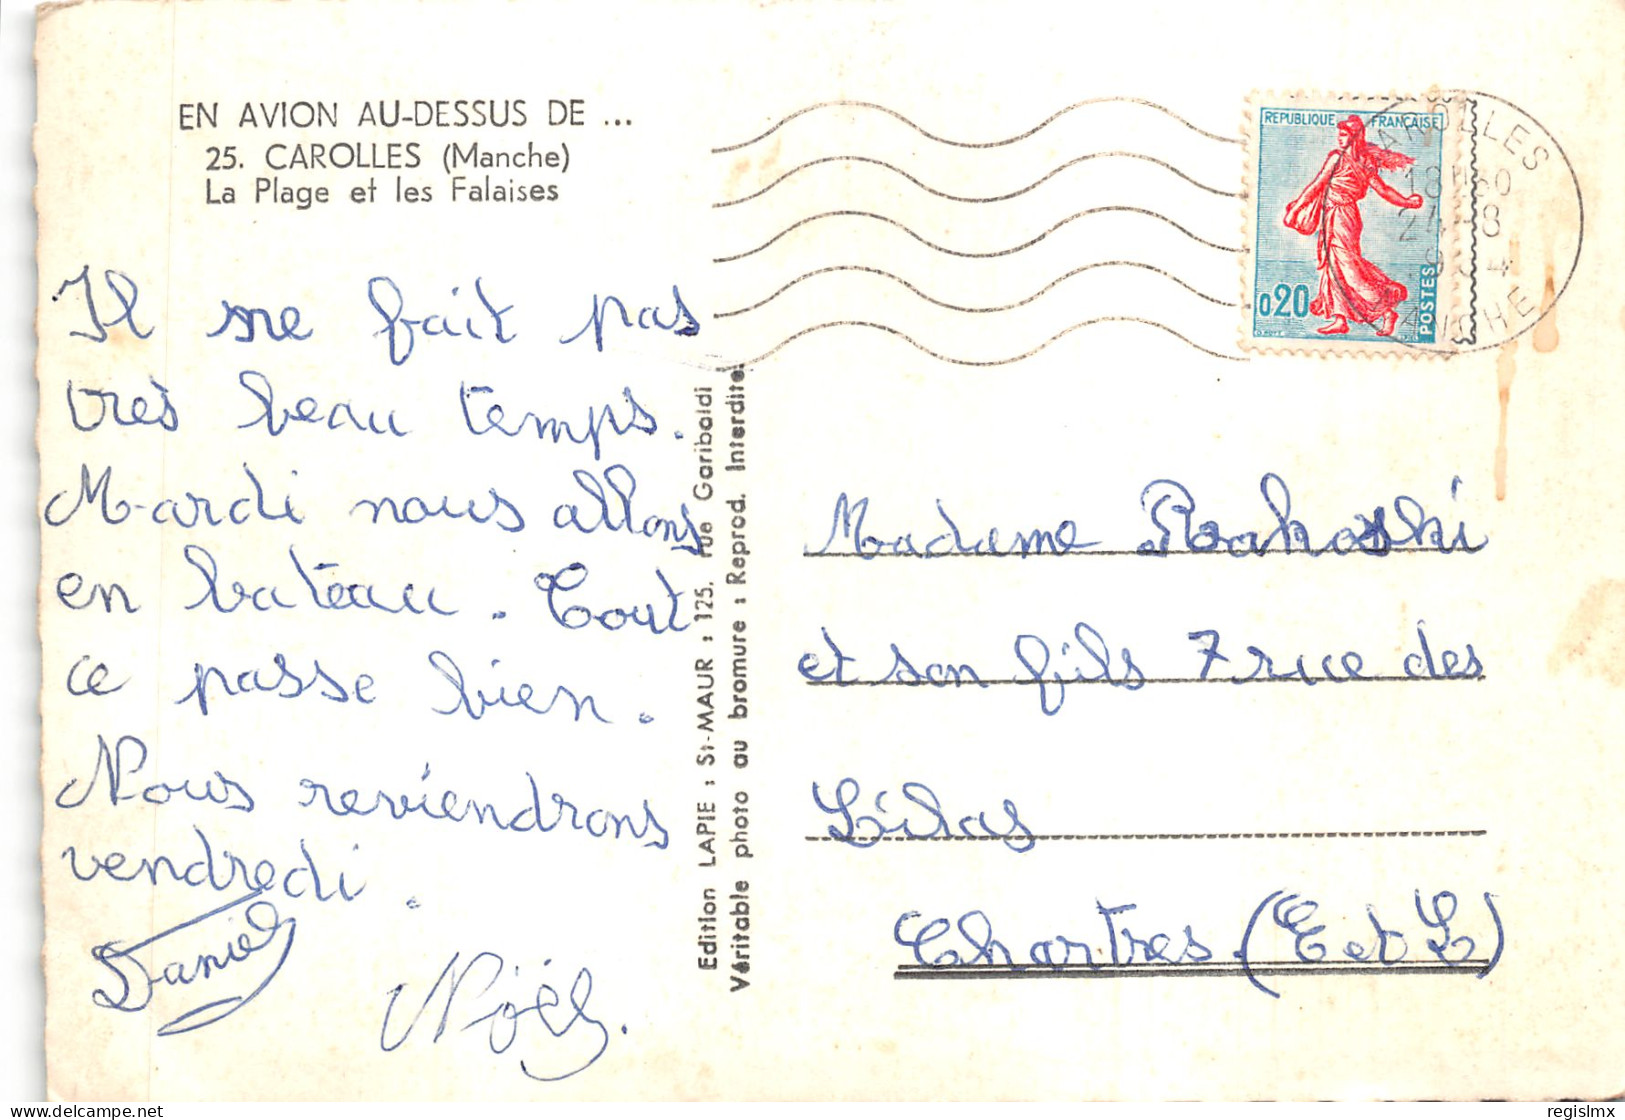 EN AVION AU-DESSUS DE ...
25. CAROLLES (Manche)
La Plage et les Falaises
REPUBLIQUE FRANCAISE
0,20
POSTES
CAROLLES
18 H 30
24 - 8
MANCHE
Il ne fait pas
très beau temps.
Mardi nous allons
en bateau. Tout
ce passe bien.
Nous reviendrons
vendredi.
Daniel
Noël.
Edition LAPIE : St-MAUR : 125. rue Garibaldi
Véritable photo au bromure : Reprod. Interdite.
Madame
et son fils 7 rue des
Lilas
Chartres (E et L)
Delcampe.net
regislmx